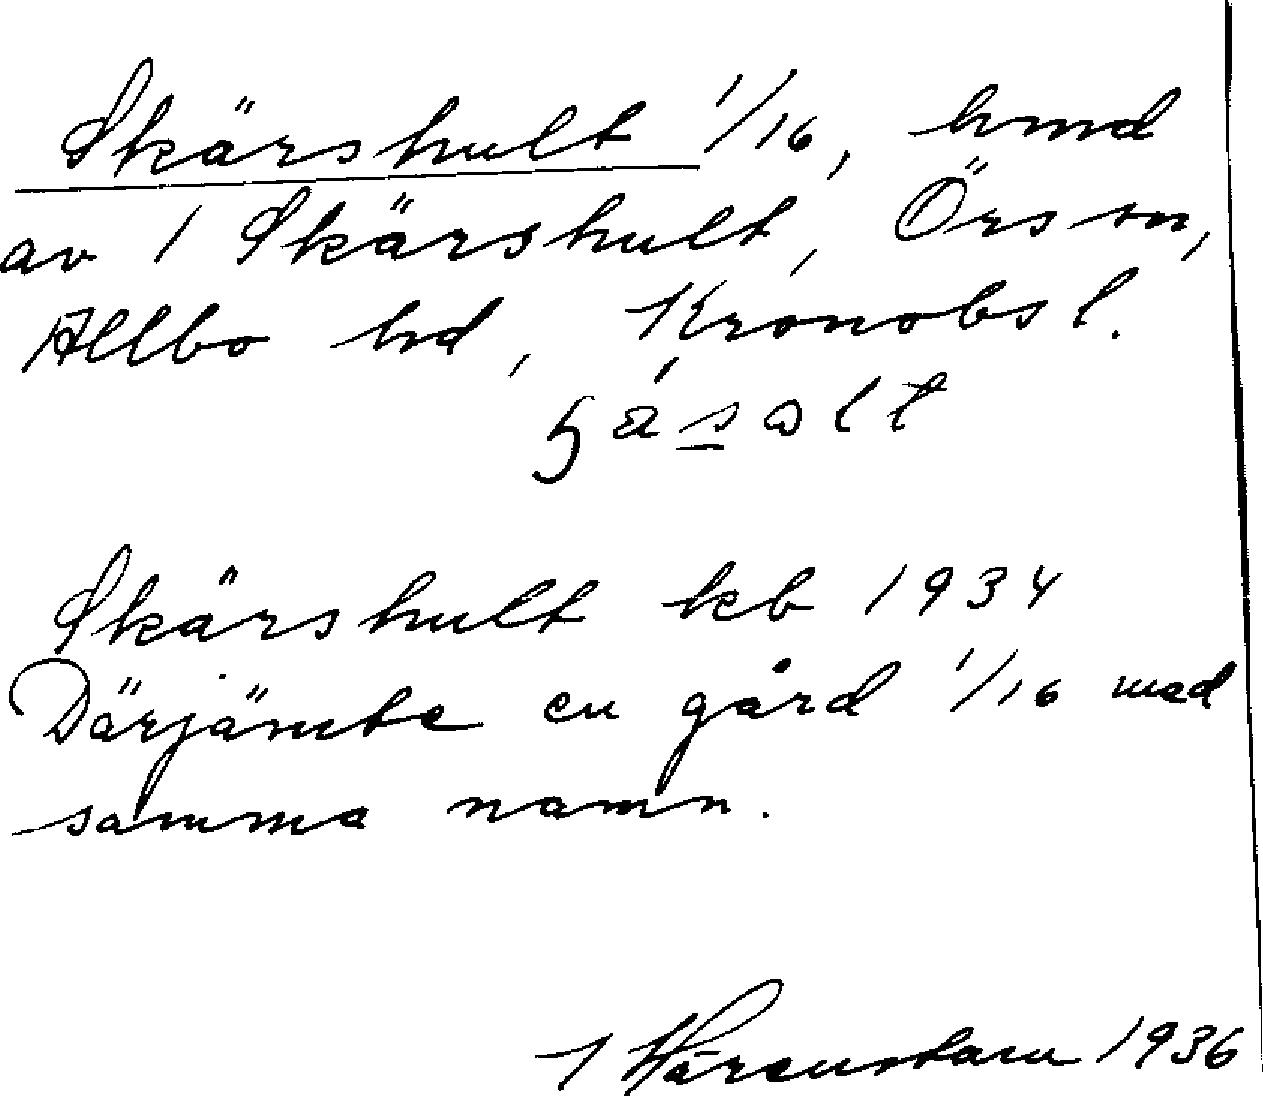 Skärshult 1/16, hmd
av 1 Skärshult, Örs sn,
Allbo hd, Kronobs l.
Skärshult kb 1934
Därjämte en gård 1/16 med
samma namn.
1936